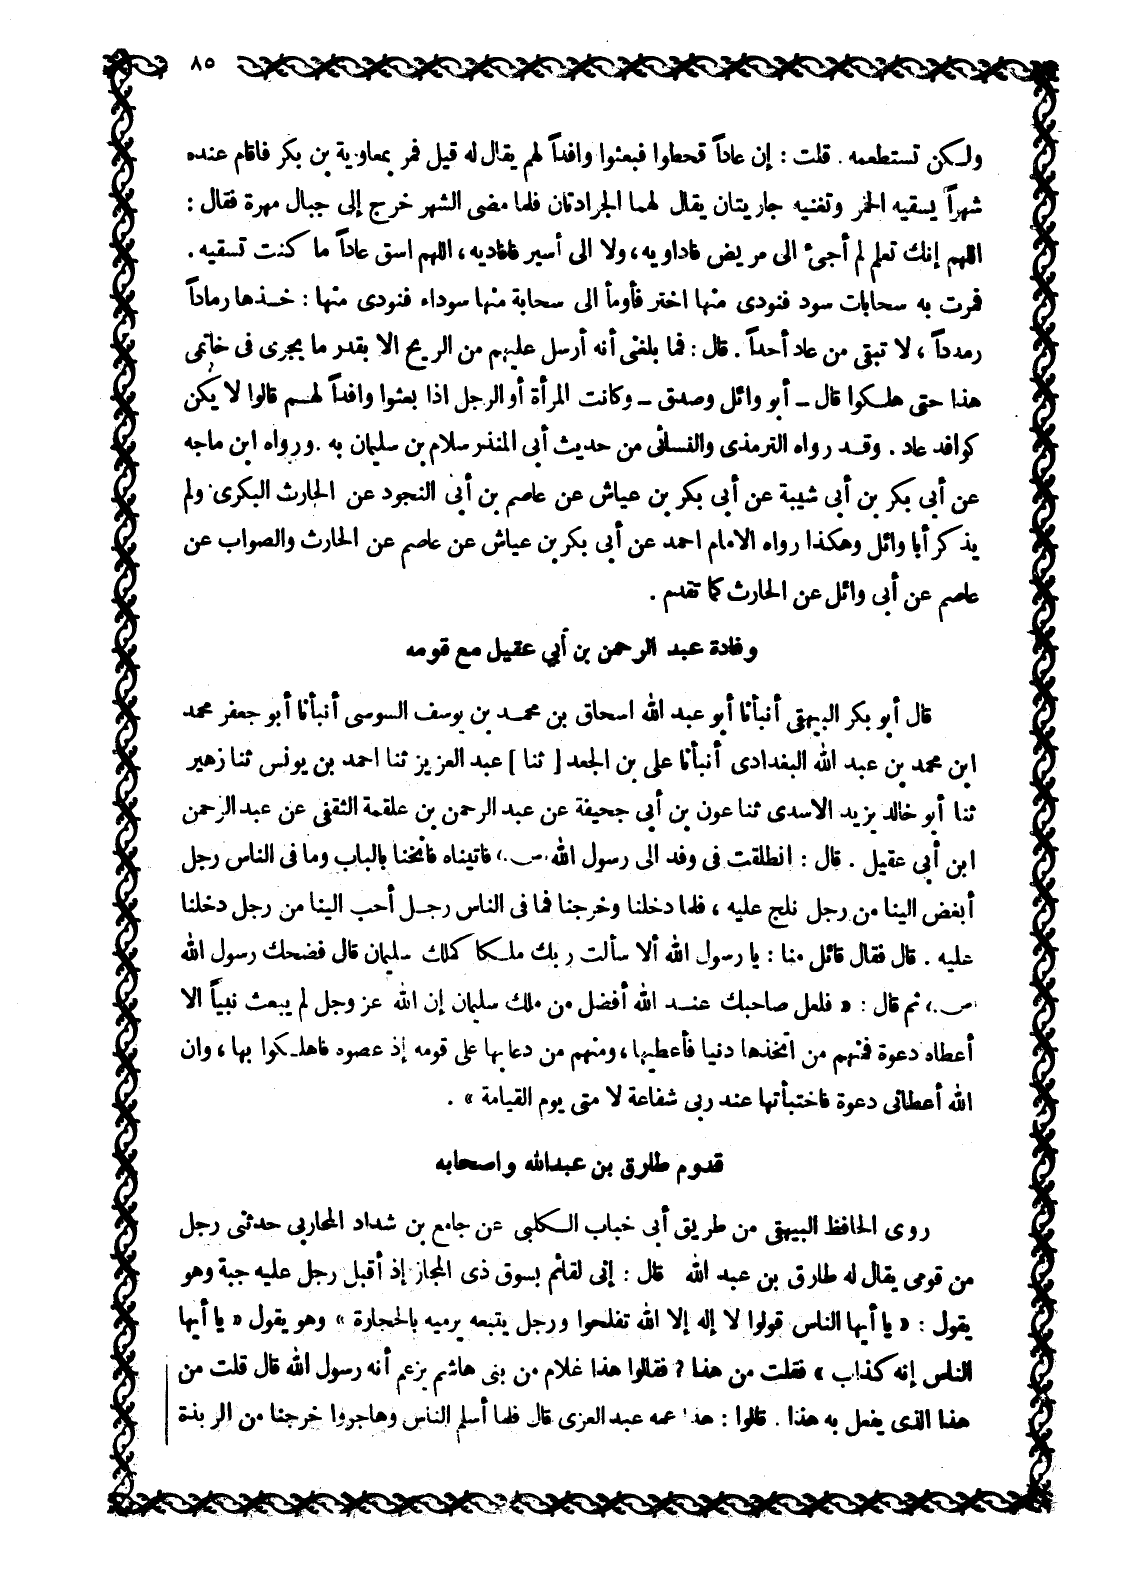 ٨٥
ولكن تستطعمه . قلت : إن عاداً قحطوا فبعثوا وافداً لهم يقال له قيل فمر بمعاوية بن بكر فاقام عنده
شهراً يسقيه الخمر وتغنيه جاريتان يقال لهما الجرادتان فلما مضى الشهر خرج إلى جبال مهرة فقال :
اللهم إنك تعلم لم أجىء الى مريض فاداويه ، ولا الى أسير فافاديه ، اللهم اسق عاداً ما كنت تسقيه .
فمرت به سحابات سود فنودى منها اختر فأومأ الى سحابة منها سوداء فنودى منها : خذها رماداً
رمدداً ، لا تبقى من عاد أحداً . قال : فما بلغنى أنه أرسل عليهم من الريح الا بقدر ما يجرى فى خاتمى
هذا حتى هلكوا قال ــ أبو وائل وصدق ــ وكانت المرأة أو الرجل اذا بعثوا وافداً لهم قالوا لا يكن
كوافد عاد . وقد رواه الترمذى والنسائى من حديث أبى المنذر سلام بن سليمان به . ورواه ابن ماجه
عن أبى بكر بن أبى شيبة عن أبى بكر بن عياش عن عاصم بن أبى النجود عن الحارث البكرى ولم
يذكر أبا وائل وهكذا رواه الامام احمد عن أبى بكر بن عياش عن عاصم عن الحارث والصواب عن
عاصم عن أبى وائل عن الحارث كما تقدم .
وفادة عبد الرحمن بن أبي عقيل مع قومه
قال أبو بكر البيهقى أنبأنا أبو عبد الله اسحاق بن محمد بن يوسف السوسى أنبأنا أبو جعفر محمد
ابن محمد بن عبد الله البغدادى أنبأنا على بن الجعد [ ثنا ] عبد العزيز ثنا احمد بن يونس ثنا زهير
ثنا أبو خالد يزيد الاسدى ثنا عون بن أبي جحيفة عن عبد الرحمن بن علقمة الثقفى عن عبد الرحمن
ابن أبى عقيل . قال : انطلقت فى وفد الى رسول الله (ص) فاتيناه فانخنا بالباب وما فى الناس رجل
أبغض الينا من رجل نلج عليه ، فلما دخلنا وخرجنا فما فى الناس رجل أحب الينا من رجل دخلنا
عليه . قال فقال قائل منا : يا رسول الله ألا سألت ربك ملكا كملك سليمان قال فضحك رسول الله
(ص) ثم قال : « فلعل صاحبك عند الله أفضل من ملك سليمان إن الله عز وجل لم يبعث نبياً الا
أعطاه دعوة فمنهم من اتخذها دنيا فأعطيها ، ومنهم من دعا بها على قومه إذ عصوه فاهلكوا بها ، وان
الله أعطانى دعوة فاختبأتها عند ربى شفاعة لا متى يوم القيامة » .
قدوم طارق بن عبدالله واصحابه
روى الحافظ البيهقى من طريق أبى خباب الكلبى عن جامع بن شداد المحاربى حدثنى رجل
من قومى يقال له طارق بن عبد الله قال : إنى لقائم بسوق ذى المجاز إذ أقبل رجل عليه جبة وهو
يقول : « يا أيها الناس قولوا لا إله إلا الله تفلحوا ورجل يتبعه يرميه بالحجارة » وهو يقول « يا أيها
الناس إنه كذاب » فقلت من هذا ؟ فقالوا هذا غلام من بنى هاشم يزعم أنه رسول الله قال قلت من
هذا الذى يفعل به هذا . قالوا : هذا عمه عبد العزى قال فلما أسلم الناس وهاجروا خرجنا من الربذة